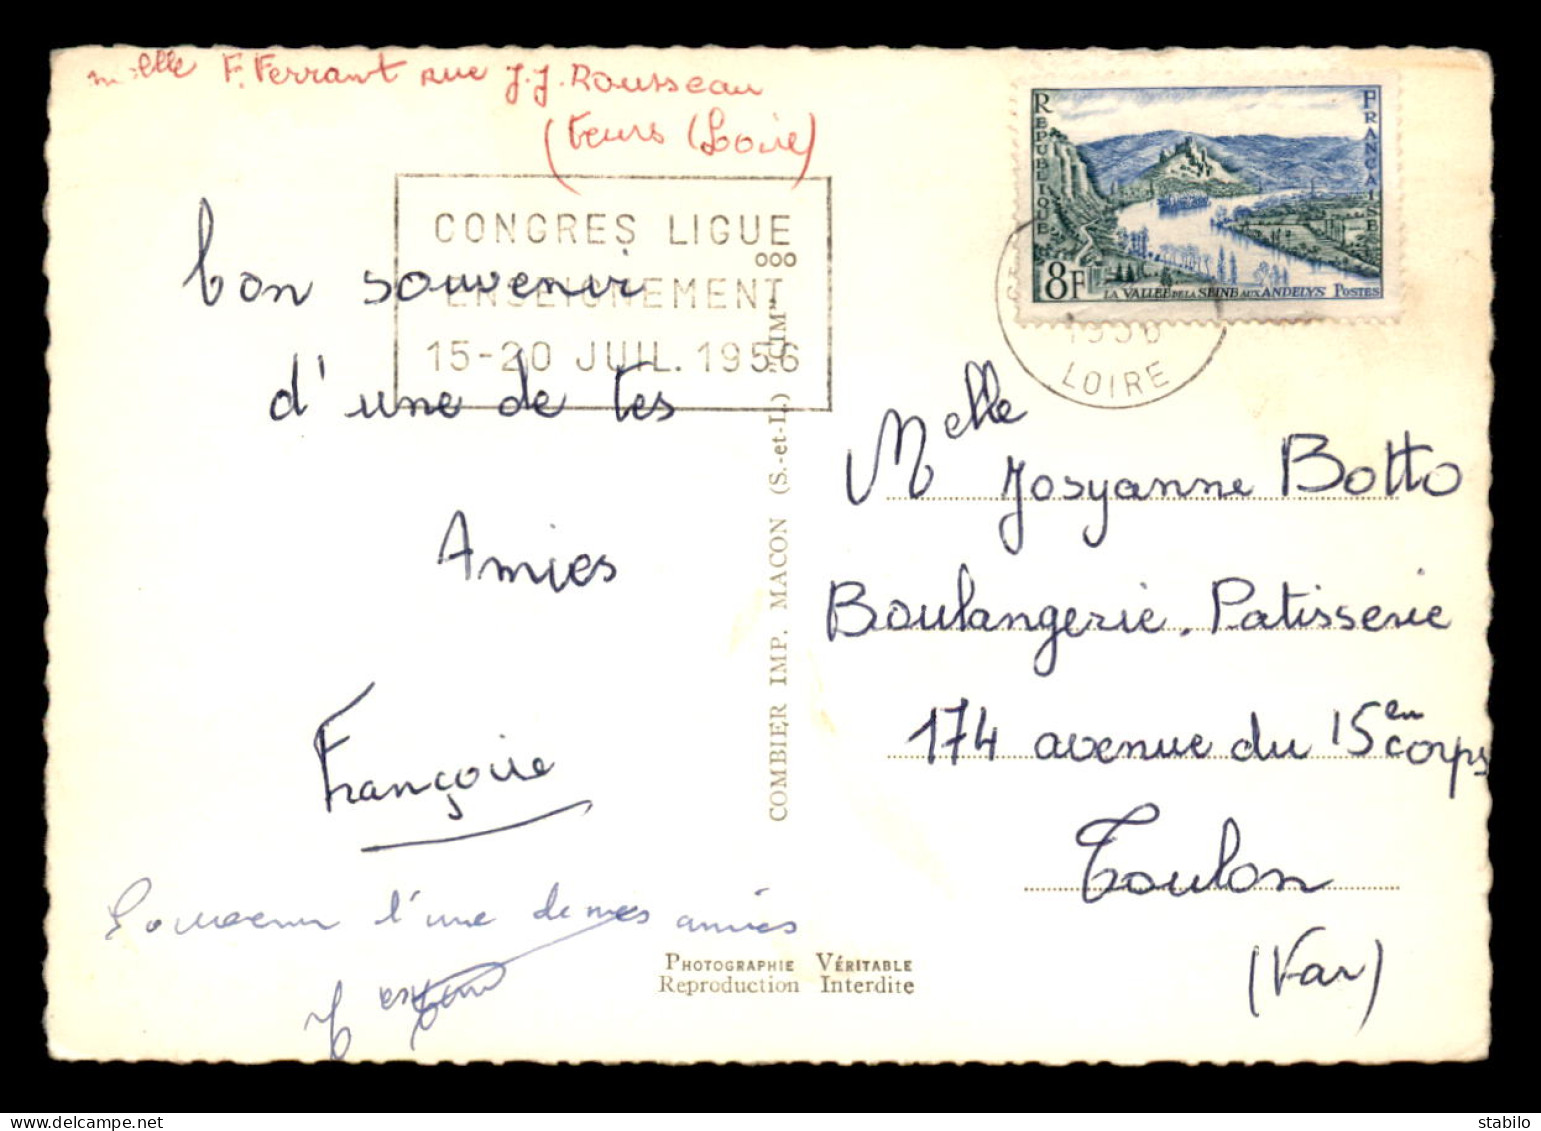 Melle F. Ferrant rue J.J. Rousseau
(Feurs (Loire)
CONGRES LIGUE
ENSEIGNEMENT
15-20 JUIL. 1956
REPUBLIQUE FRANÇAISE
8F LA VALLÉE DE LA SEINE AUX ANDELYS POSTES
1956
LOIRE
bon souvenir
d'une de tes
Amies
Françoise
Souvenir d'une de mes amies
COMBIER IMP. MACON (S.-et-L.) "CIM"
Melle Josyanne Botto
Boulangerie. Patisserie
174 avenue du 15en corps
Toulon
(Var)
PHOTOGRAPHIE VÉRITABLE
Reproduction Interdite
stabilo